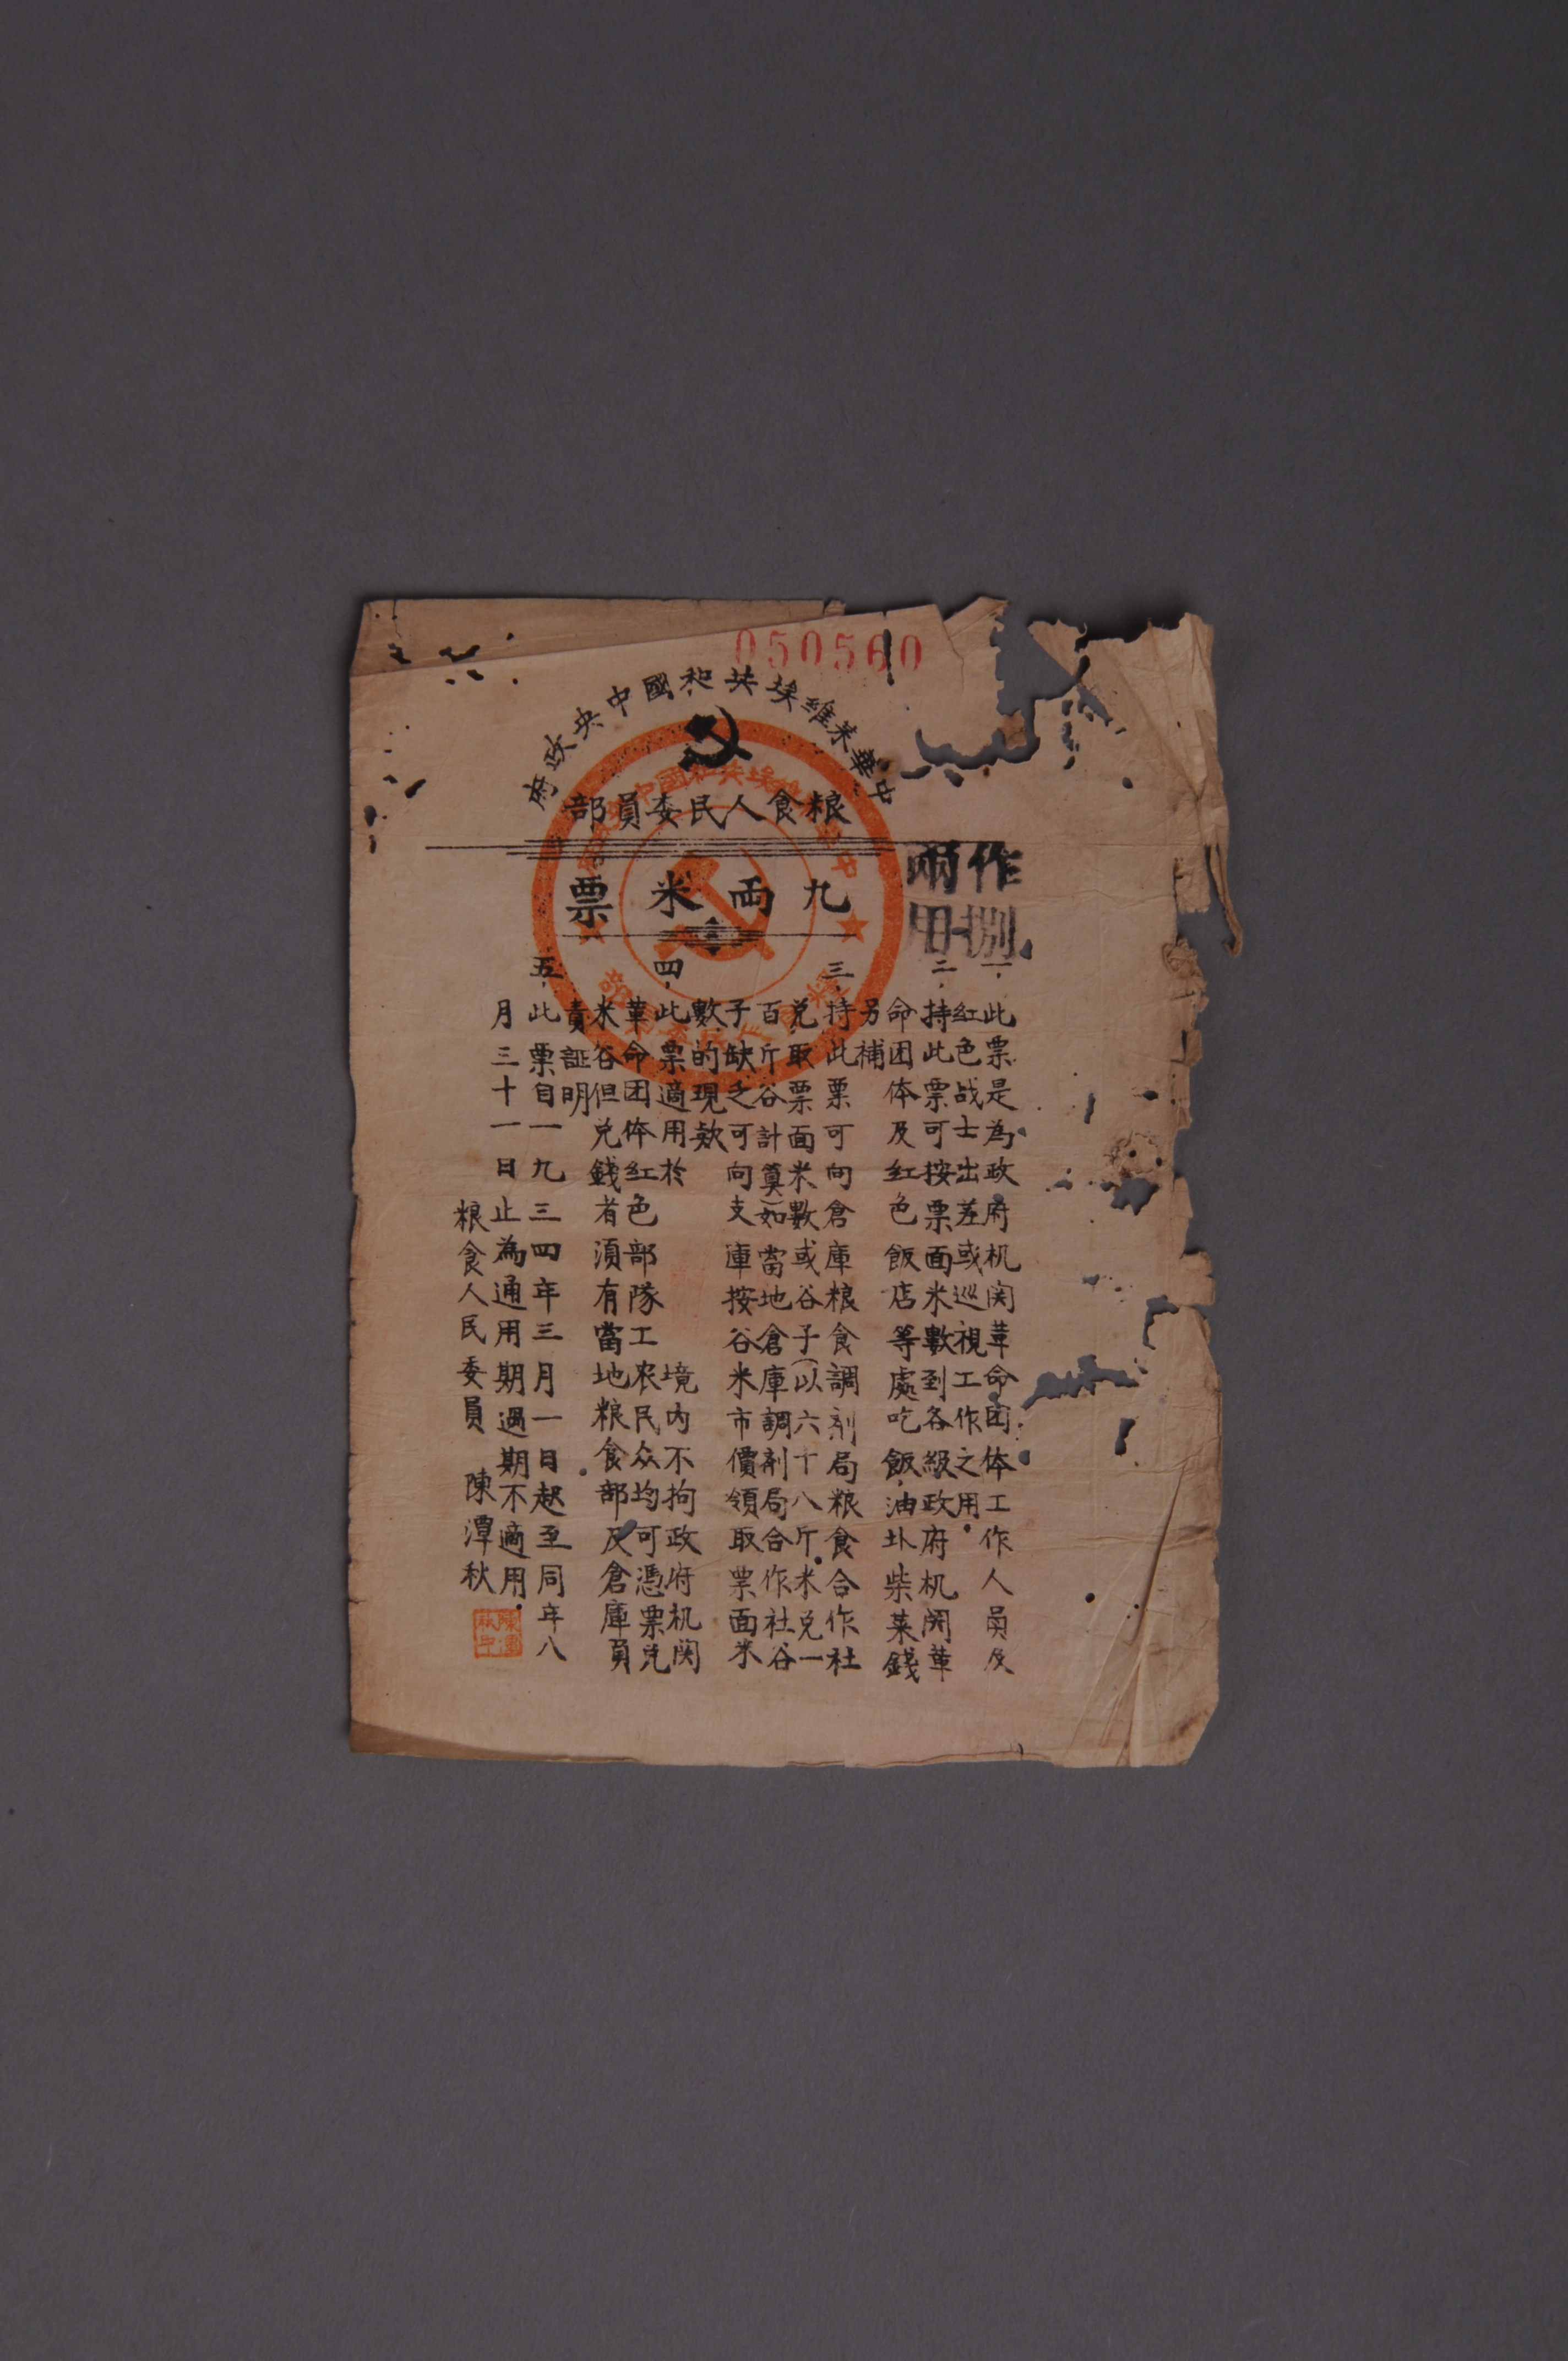 050560
中華蘇維埃共和國中央政府
粮食人民委員部
九両米票
作捌
兩用
一、此票是為政府机関革命团体工作人員及
紅色战士出差或巡視工作之用．
二、持此票可按票面米數到各級政府机関革
命团体及紅色飯店等處吃飯，油圤柴菜錢
另補
三、持此票可向倉庫粮食調剂局粮食合作社
兑取票面米數或谷子（以六十八斤米兑一
百斤谷計算）如當地倉庫調剂局合作社谷
子缺乏可向支庫按谷米市價領取票面米
數的現款
四、此票適用於　　　　境内不拘政府机関
革命团体紅色部隊工农民众均可憑票兑
米谷但兑錢者須有當地粮食部及倉庫員
責証明
五、此票自一九三四年三月一日起至同年八
月三十一日止為通用期過期不適用．
粮食人民委員　陳潭秋
陳潭秋印
中華蘇維埃共和國中央政府
粮食人民委員部